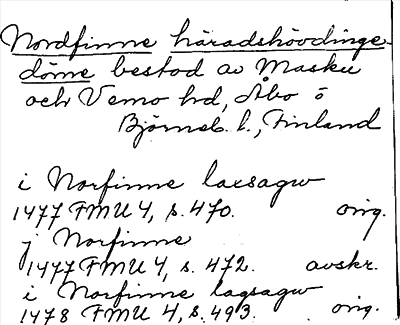 Nordfinne häradshövdinge-
döme bestod av Masku
och Vemo hd, Åbo o
Björneb. l., Finland
i Norfinne laxsagw
1477 FMU 4, s. 470. orig.
j Norfinne
1477 FMU 4, s. 472. avskr.
i Norfinne lagsagw
1478 FMU 4, s. 493. orig.